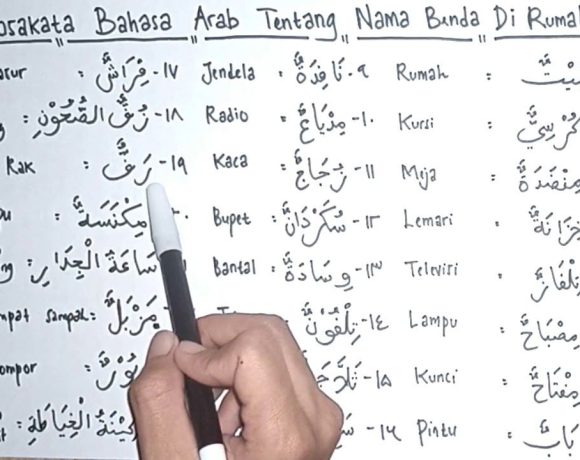 osakata Bahasa Arab Tentang Nama Benda Di Rumah
asur : فِرَاشٌ -١٧ Jendela : نَافِذَةٌ -٩ Rumah : بَيْتٌ
: رُفُّ الصُّحُوْنِ -١٨ Radio : مِذْيَاعٌ -١٠ Kursi : كُرْسِيٌّ
Rak : رَفٌّ -١٩ Kaca : زُجَاجٌ -١١ Meja : مِنْضَدَةٌ
: مِكْنَسَةٌ Bupet : سُكْرُدَانٌ -١٢ Lemari : خِزَانَةٌ
: سَاعَةُ الْجِدَارِ Bantal : وِسَادَةٌ -١٣ Televisi : تِلْفَازٌ
mpat sampah : مَزْبَلٌ : تِلْفُوْنٌ -١٤ Lampu : مِصْبَاحٌ
ompor : -١٥ Kunci : مِفْتَاحٌ
: الْخِيَاطَةِ -١٦ Pintu : بَابٌ